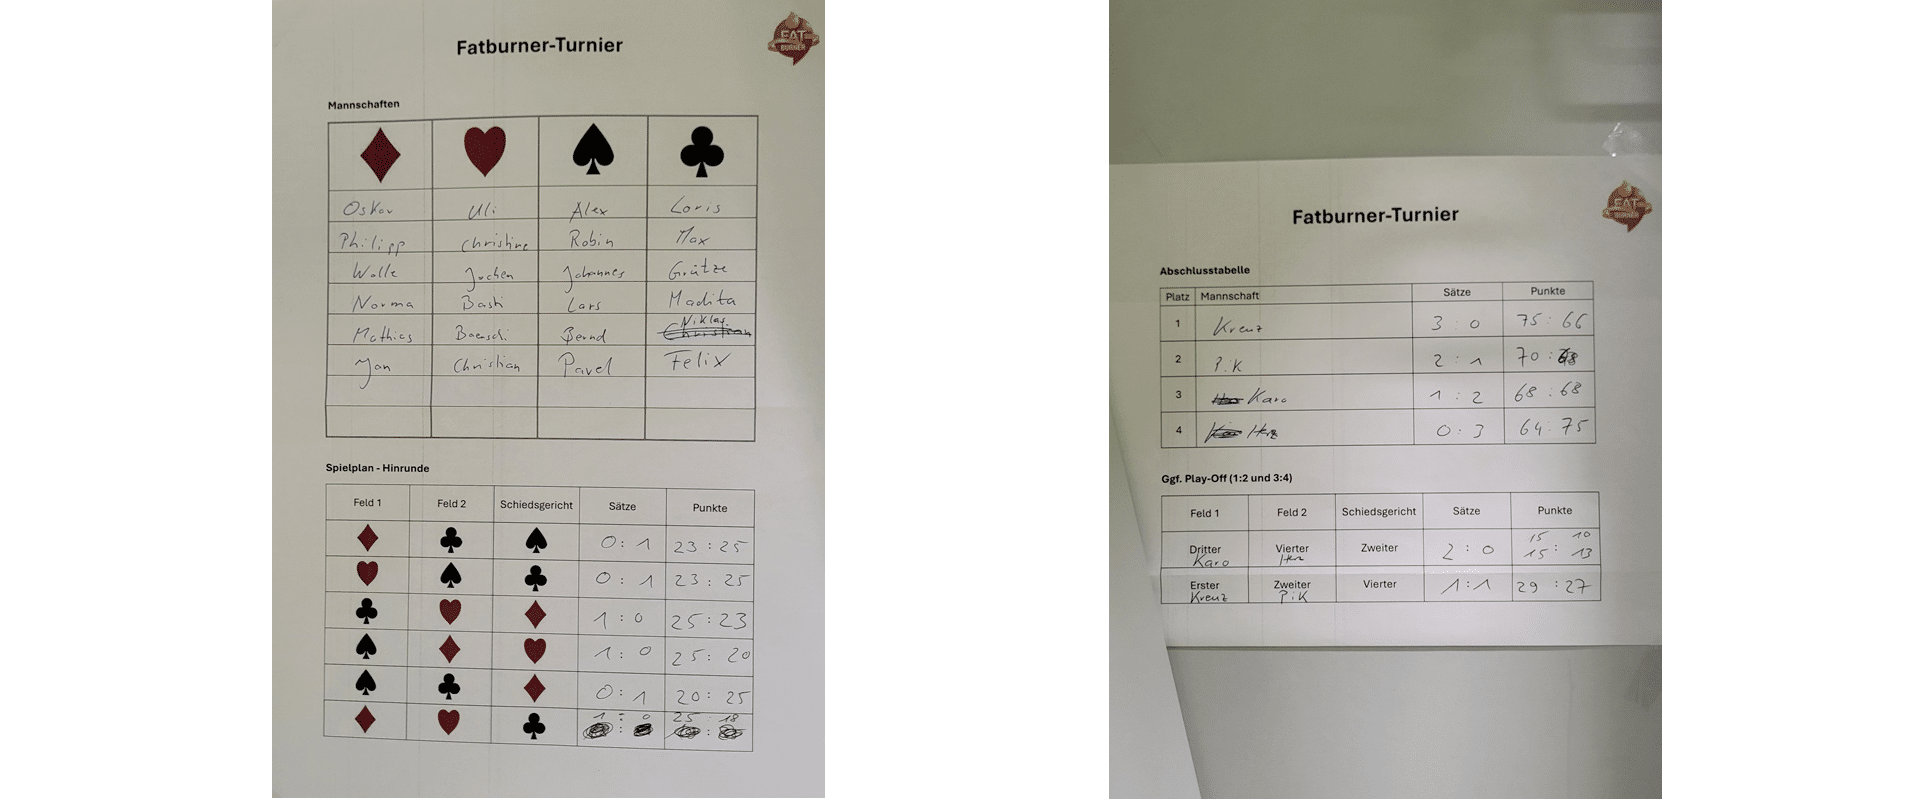 Fatburner-Turnier
FAT
BURNER
Mannschaften
Oskar Uli Alex Loris
Philipp Christine Robin Max
Wolle Jochen Johannes Grütze
Norma Basti Lars Madita
Mathias Baenschi Bernd Niklas
Jan Christian Pavel Felix
Spielplan - Hinrunde
Feld 1 Feld 2 Schiedsgericht Sätze Punkte
0 : 1 23 : 25
0 : 1 23 : 25
1 : 0 25 : 23
1 : 0 25 : 20
0 : 1 20 : 25
1 : 0 25 : 18
Fatburner-Turnier
FAT
BURNER
Abschlusstabelle
Platz Mannschaft Sätze Punkte
1 Kreuz 3 : 0 75 : 66
2 Pik 2 : 1 70 : 68
3 Karo 1 : 2 68 : 68
4 Herz 0 : 3 64 : 75
Ggf. Play-Off (1:2 und 3:4)
Feld 1 Feld 2 Schiedsgericht Sätze Punkte
15 10
Dritter Vierter Zweiter 2 : 0 15 : 13
Karo Herz
Erster Zweiter Vierter 1 : 1 29 : 27
Kreuz Pik